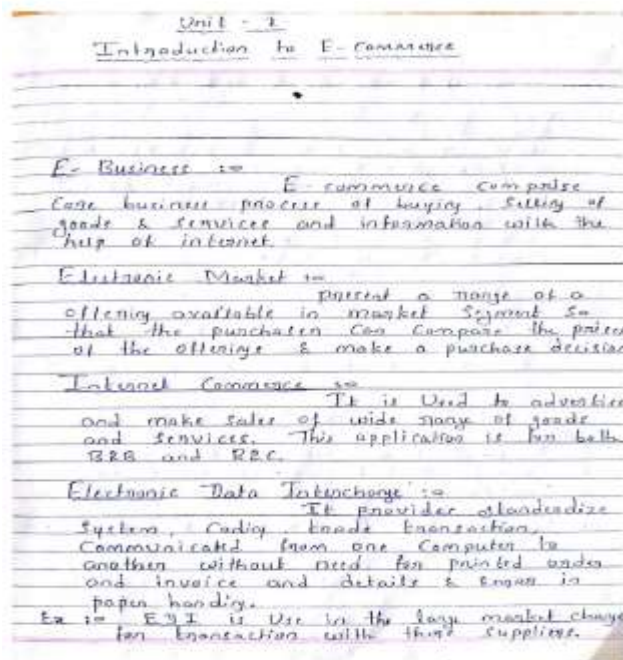 Unit - 1
Introduction to E-commerce
E- Business :-
E-commerce comprise
Core business process of buying, Selling of
goods & Services and information with the
help of internet.
Electronic Market :-
present a range of a
offering available in market segment so
that the purchaser Can Compare the prices
of the offerings & make a purchase decision
Internet Commerce :-
It is Used to advertise
and make sales of wide range of goods
and services. This application is for both
B2B and B2C.
Electronic Data Interchange :-
It provider standerdize
System, Coding trade transaction,
Communicated from one Computer to
another without need for printed order
and invoice and details & error in
paper handig.
Ex :- EDI is Use in the large market
for transaction with their suppliers.